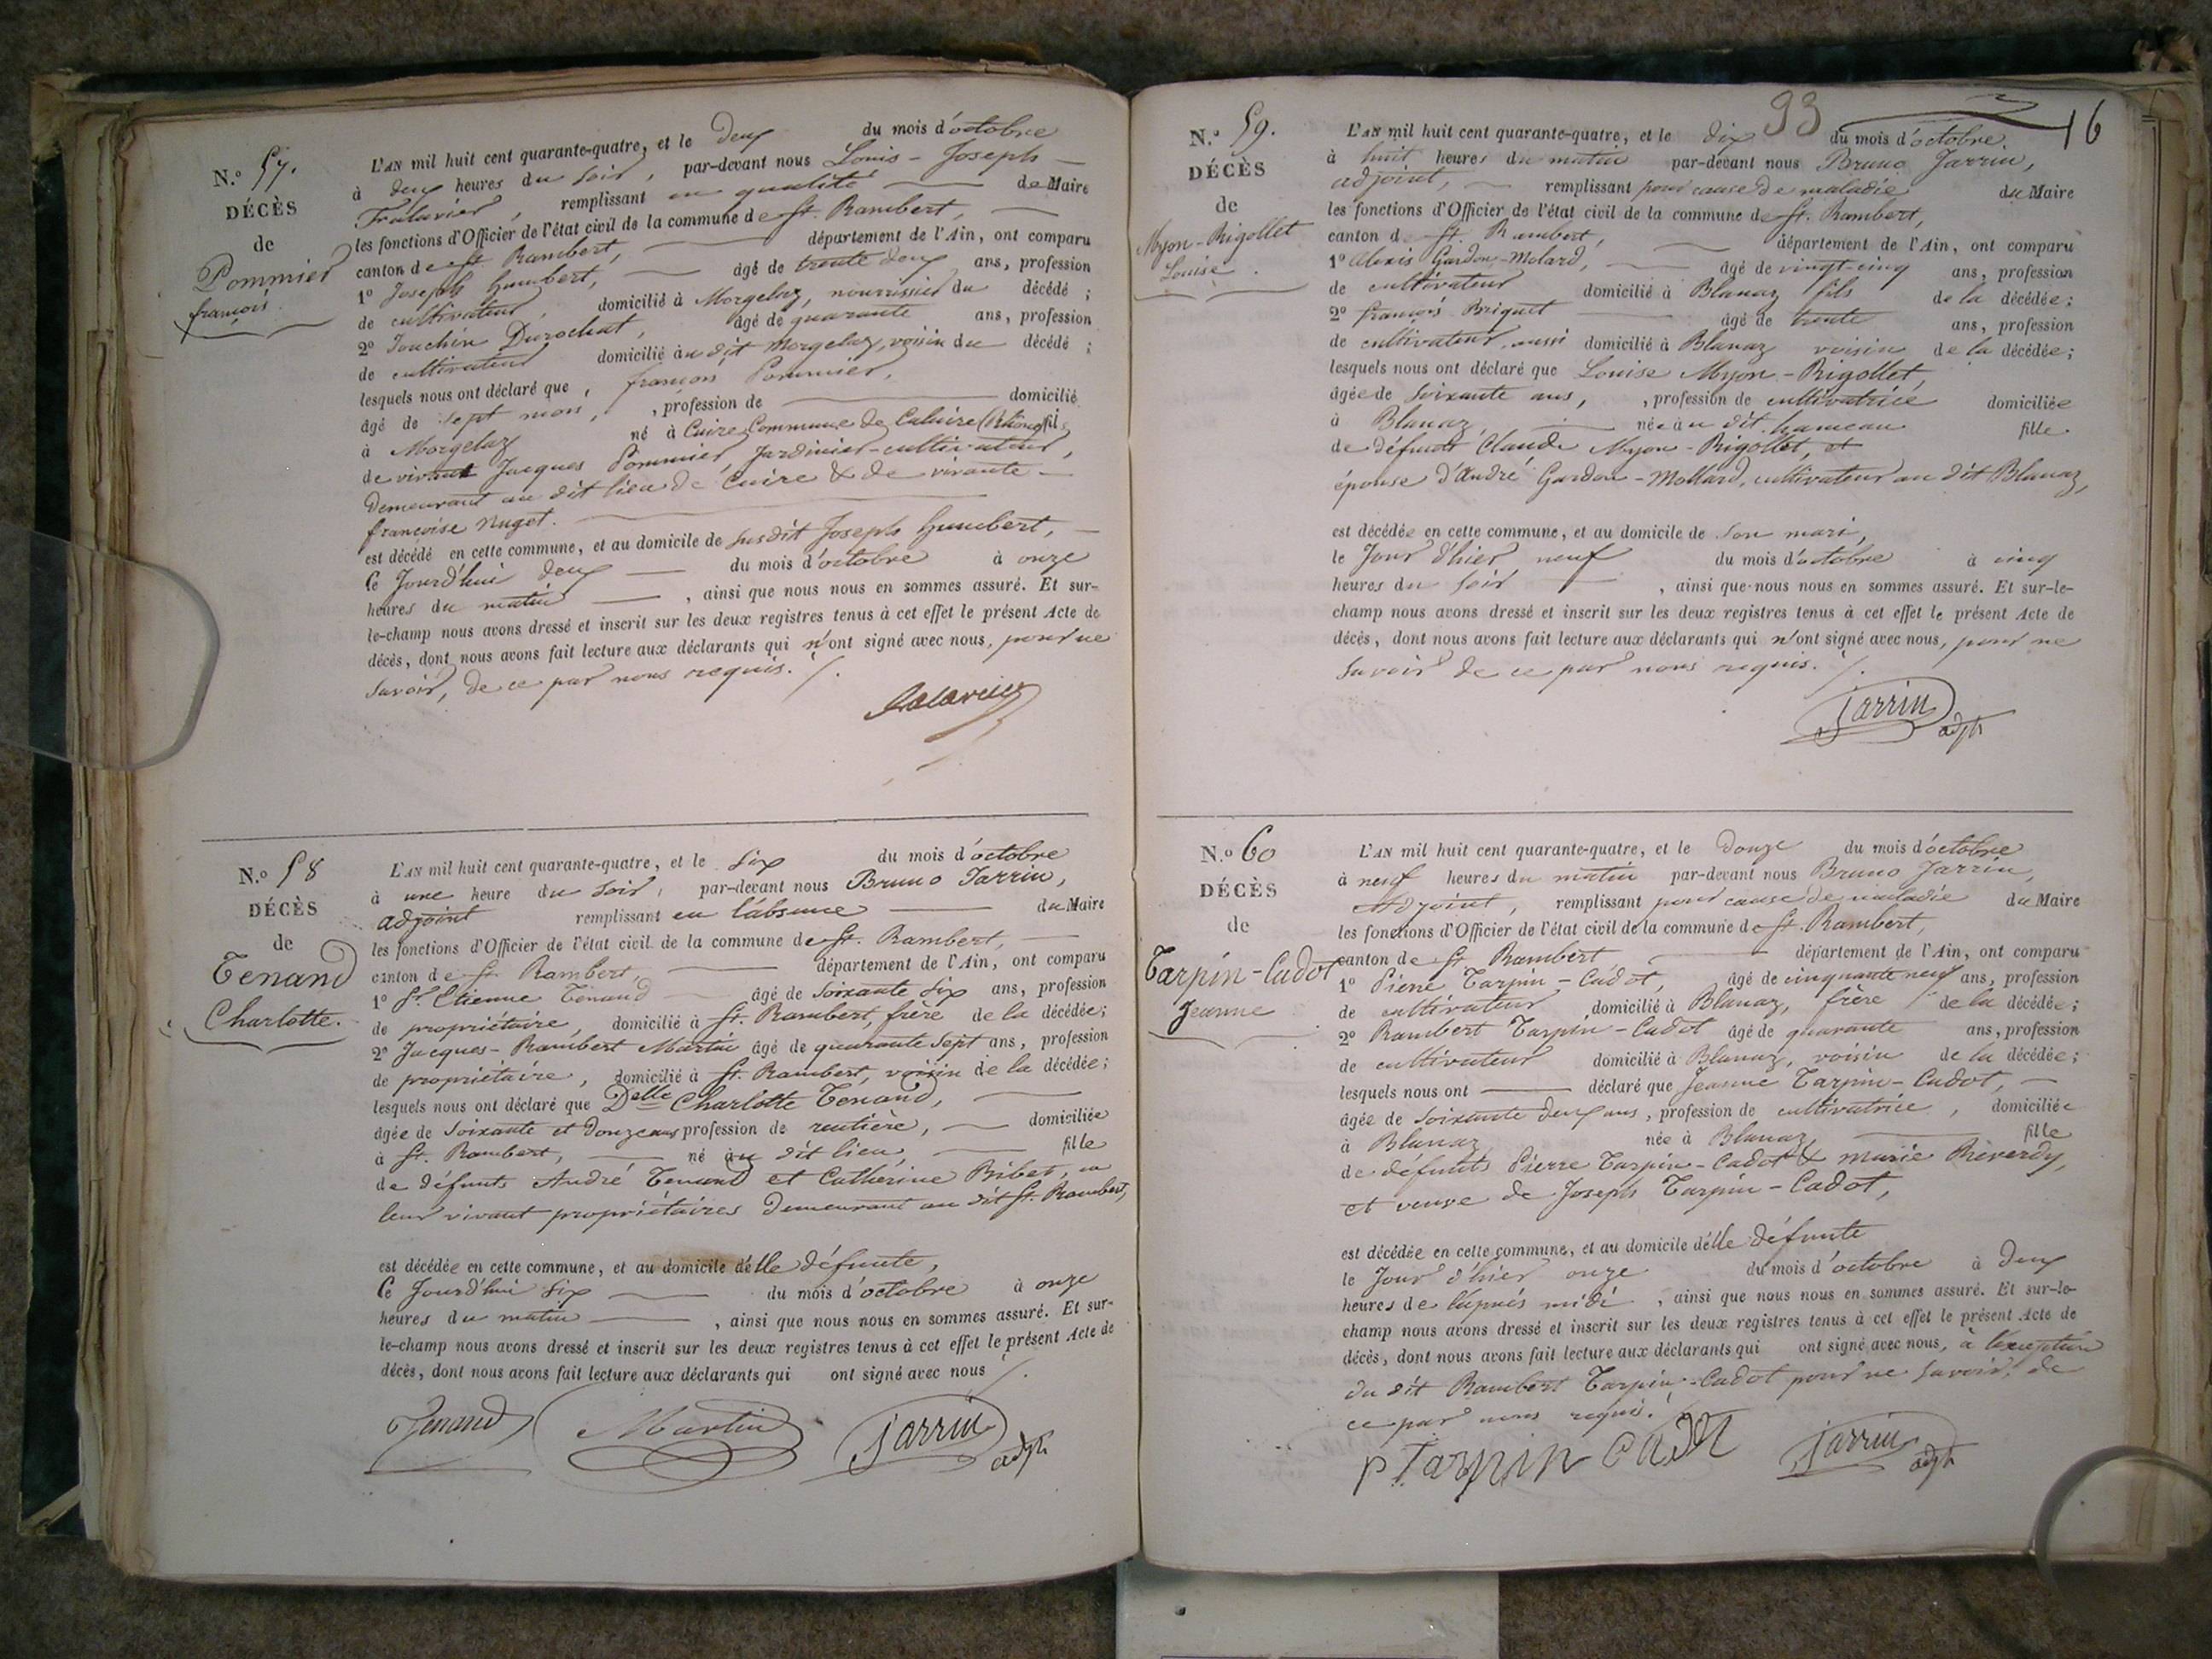 N.º 57.
DÉCÈS
de
Pommier
françois.
L'AN mil huit cent quarante-quatre, et le deux du mois d'octobre
à deux heures du soir, par-devant nous Louis-Joseph
Tralavier, remplissant en qualité de Maire
les fonctions d'Officier de l'état civil de la commune de St. Rambert,
canton de St. Rambert, département de l'Ain, ont comparu
1º Joseph Humbert, âgé de trente deux ans, profession
de cultivateur, domicilié à Morgelaz, nourrissier du décédé ;
2º Durochat, âgé de quarante ans, profession
de cultivateur domicilié au dit Morgelaz, voisin du décédé ;
lesquels nous ont déclaré que, françois Pommier,
âgé de sept mois, , profession de domicilié
à Morgelaz né à Cuire, Commune de Caluire (Rhône) fils
de vivant Jacques Pommier, Jardinier-cultivateur,
demeurant au dit lieu de Cuire & de vivante
françoise Nugot.
est décédé en cette commune, et au domicile de susdit Joseph Humbert,
Ce Jourd'hui deux du mois d'octobre à onze
heures du matin , ainsi que nous nous en sommes assuré. Et sur-
le-champ nous avons dressé et inscrit sur les deux registres tenus à cet effet le présent Acte de
décès, dont nous avons fait lecture aux déclarants qui n'ont signé avec nous, pour ne
savoir, de ce par nous requis. /.
N.º 58
DÉCÈS
de
Tenand
Charlotte.
L'AN mil huit cent quarante-quatre, et le six du mois d'octobre
à une heure du soir, par-devant nous Bruno Jarrin,
adjoint remplissant en l'absence du Maire
les fonctions d'Officier de l'état civil de la commune de St. Rambert,
canton de St. Rambert, département de l'Ain, ont comparu
1º Sr. Etienne Tenand âgé de soixante six ans, profession
de propriétaire, domicilié à St. Rambert, frère de la décédée;
2º Jacques-Rambert Martin âgé de quarante sept ans, profession
de propriétaire, domicilié à St. Rambert, voisin de la décédée;
lesquels nous ont déclaré que Delle Charlotte Tenand,
âgée de soixante et douze ans profession de rentière, domiciliée
à St. Rambert, né au dit lieu, fille
de défunts André Tenand et Catherine Bibet, en
leur vivant propriétaires demeurant au dit St. Rambert,
est décédée en cette commune, et au domicile d'elle défunte,
Ce Jourd'hui six du mois d'octobre à onze
heures du matin , ainsi que nous nous en sommes assuré. Et sur-
le-champ nous avons dressé et inscrit sur les deux registres tenus à cet effet le présent Acte de
décès, dont nous avons fait lecture aux déclarants qui ont signé avec nous /.
Tenand Martin Jarrin adjt
93 16
N.º 59.
DÉCÈS
de
Myon-Rigollet
Louise.
L'AN mil huit cent quarante-quatre, et le dix du mois d'octobre
à huit heures du matin par-devant nous Bruno Jarrin,
adjoint, remplissant pour cause de maladie du Maire
les fonctions d'Officier de l'état civil de la commune de St. Rambert,
canton d. St. Rambert, département de l'Ain, ont comparu
1º Alexis Gardon-Molard, âgé de vingt-cinq ans, profession
de cultivateur domicilié à Blanaz fils de la décédée;
2º françois Briquet âgé de trente ans, profession
de cultivateur, aussi domicilié à Blanaz voisin de la décédée;
lesquels nous ont déclaré que Louise Myon-Rigollet,
âgée de soixante ans, , profession de cultivatrice domiciliée
à Blanaz, née au dit hameau fille
de défunt Claude Myon-Rigollet, et
épouse d'André Gardon-Mollard, cultivateur au dit Blanaz,
est décédée en cette commune, et au domicile de son mari,
le Jour d'hier neuf du mois d'octobre à cinq
heures du soir , ainsi que nous nous en sommes assuré. Et sur-le-
champ nous avons dressé et inscrit sur les deux registres tenus à cet effet le présent Acte de
décès, dont nous avons fait lecture aux déclarants qui n'ont signé avec nous, pour ne
savoir de ce par nous requis. /.
Jarrin adjt
N.º 60
DÉCÈS
de
Tarpin-Cadot
Jeanne
L'AN mil huit cent quarante-quatre, et le douze du mois d'octobre
à neuf heures du matin par-devant nous Bruno Jarrin,
Adjoint, remplissant pour cause de maladie du Maire
les fonctions d'Officier de l'état civil de la commune de St. Rambert,
canton de St. Rambert département de l'Ain, ont comparu
1º Pierre Tarpin-Cadot, âgé de cinquante neuf ans, profession
de cultivateur domicilié à Blanaz, frère de la décédée;
2º Rambert Tarpin-Cadot âgé de quarante ans, profession
de cultivateur domicilié à Blanaz, voisin de la décédée;
lesquels nous ont déclaré que Jeanne Tarpin-Cadot,
âgée de soixante deux ans, profession de cultivatrice, domiciliée
à Blanaz née à Blanaz fille
de défunts Pierre Tarpin-Cadot & marie Réverdy,
et veuve de Joseph Tarpin-Cadot,
est décédée en cette commune, et au domicile d'elle défunte
le Jour d'hier onze du mois d'octobre à deux
heures de l'après midi , ainsi que nous nous en sommes assuré. Et sur-le-
champ nous avons dressé et inscrit sur les deux registres tenus à cet effet le présent Acte de
décès, dont nous avons fait lecture aux déclarants qui ont signé avec nous, à l'exception
du dit Rambert Tarpin-Cadot pour ne savoir, de
ce par nous requis. /.
P Tarpin Cadot Jarrin adjt